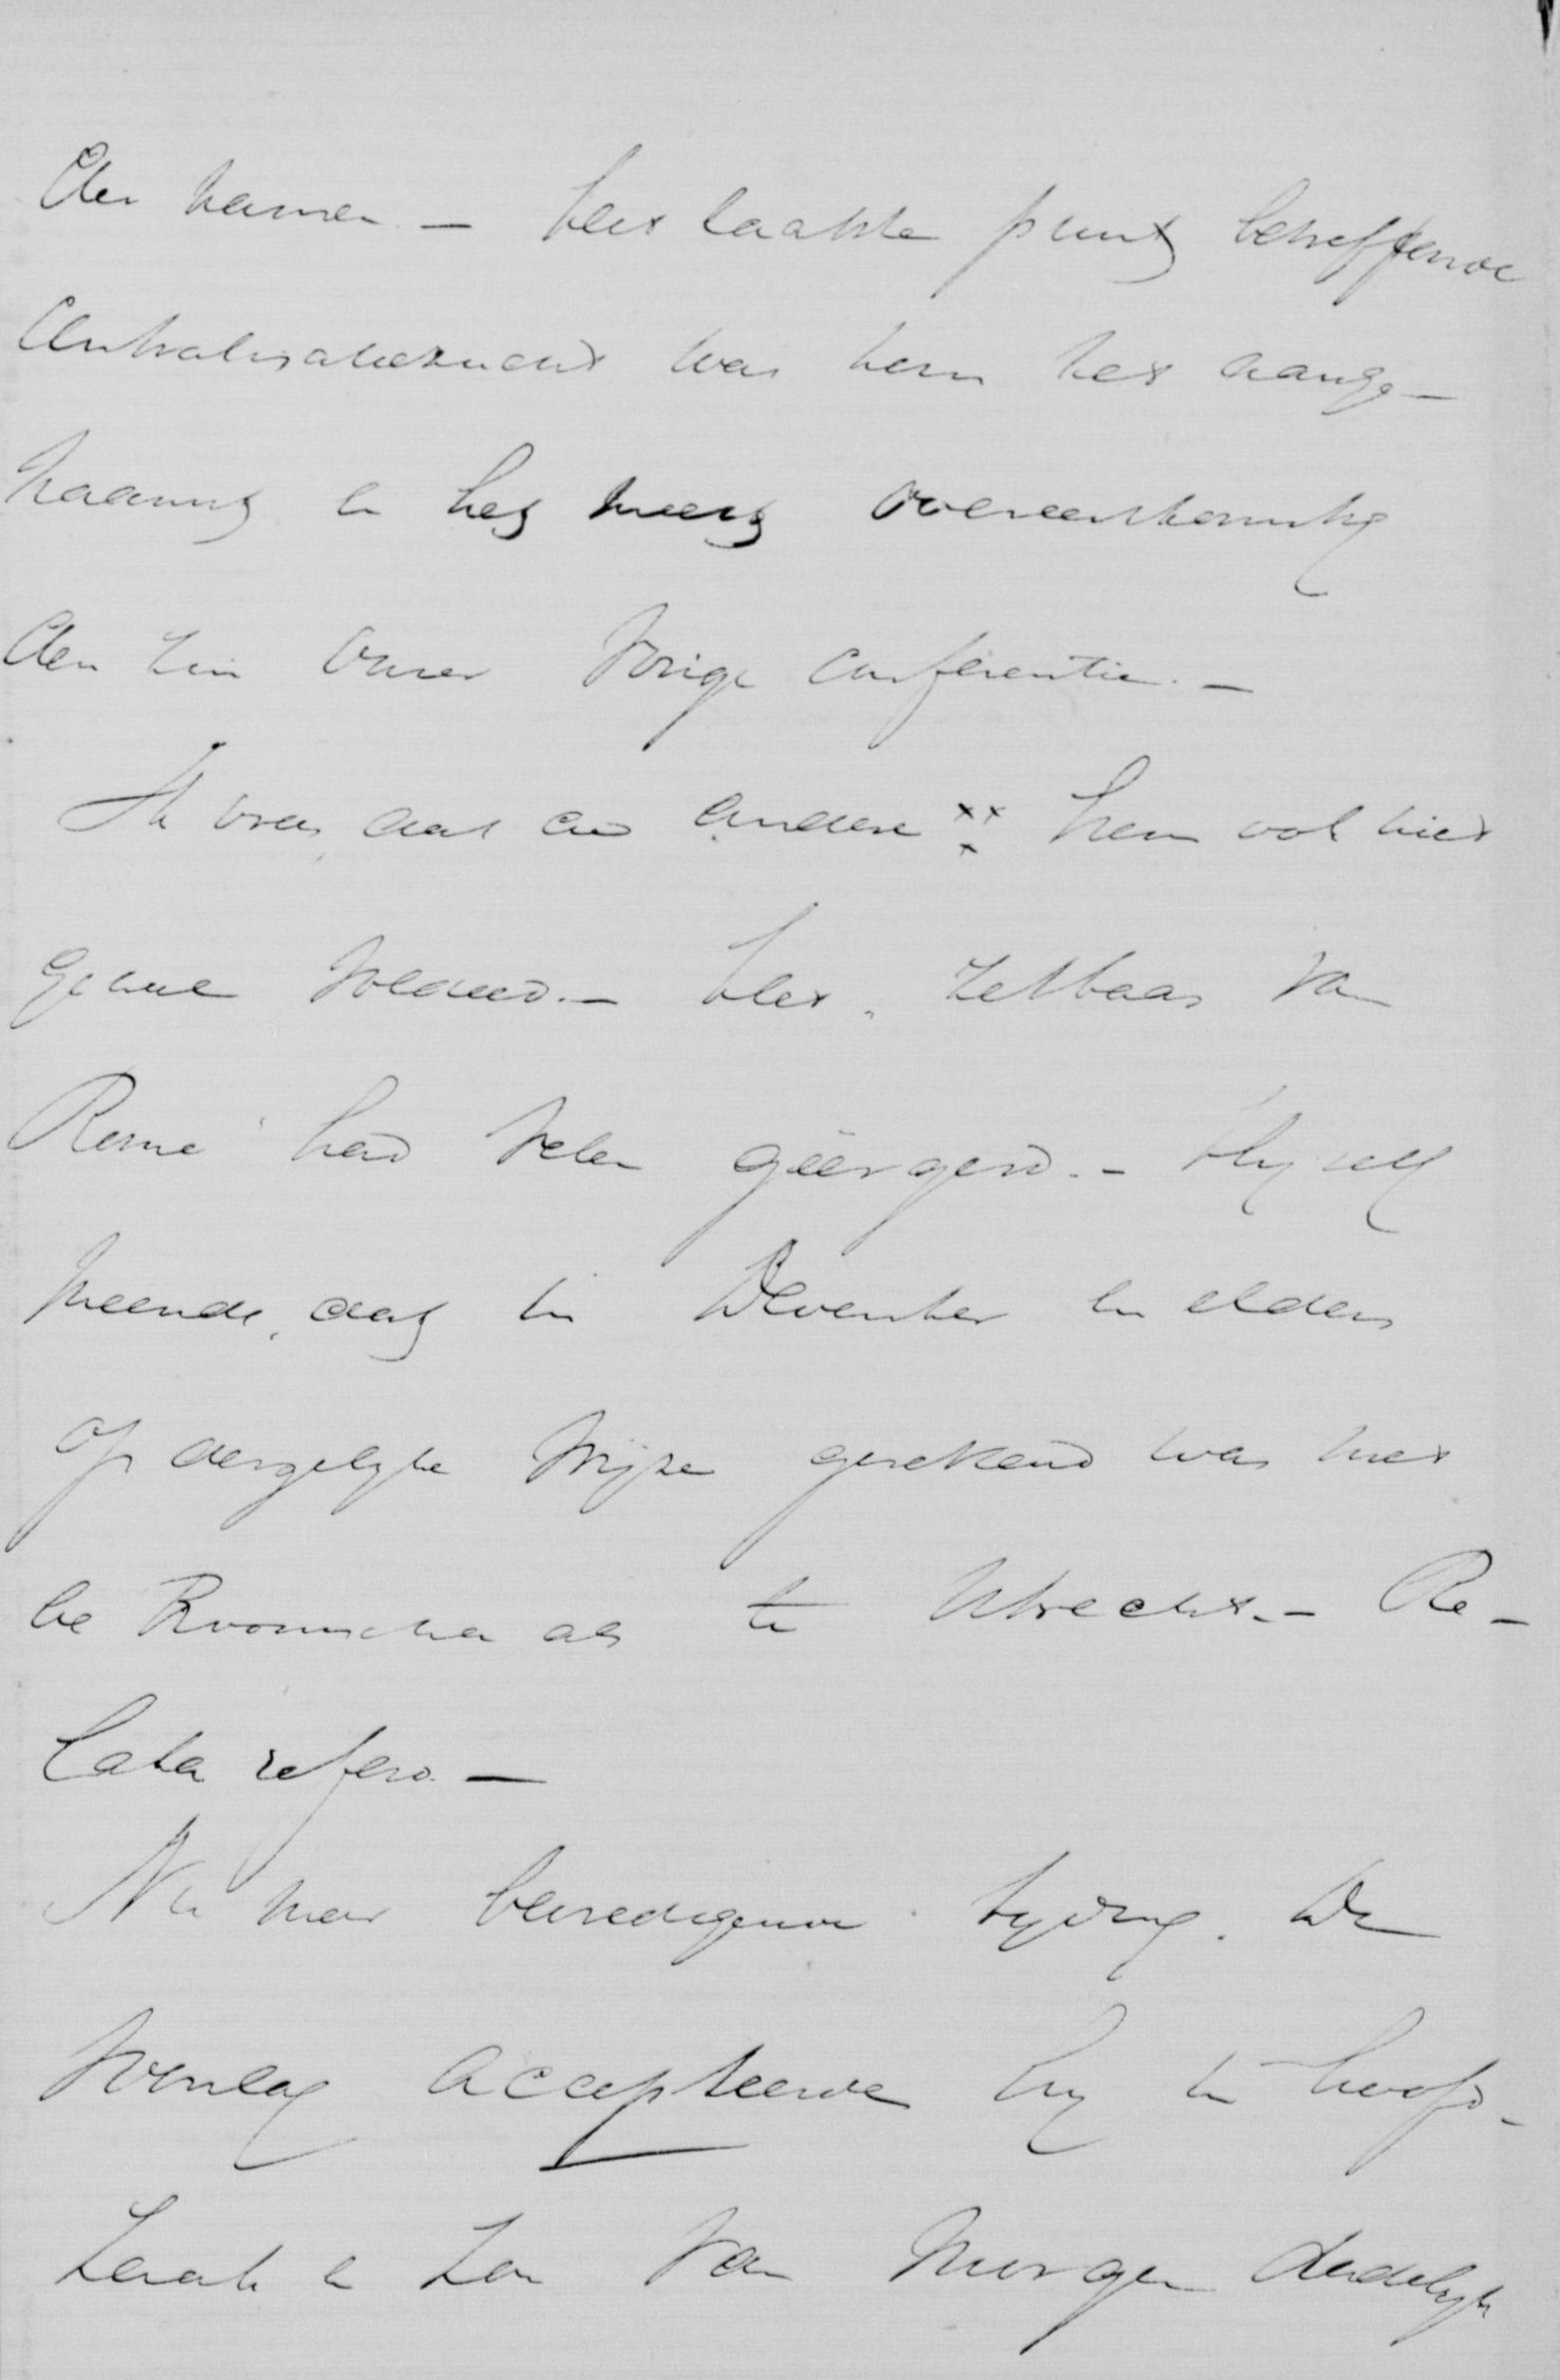 den kamer. – Het laatste punt betreffende
Centralisatiekracht was hem het aange-
naamst en het meest overeenkomstig
den zin onzer vorige conferentie. –
Ik vrees dat de andere xx hem ook niet
geheel voldeed. – Het „zetbaas van
Rome" had velen geërgerd. – Hij zelf
meende, dat in Deventer en elders
op dergelijke wijze gerekend was met
de Roomschen als te Utrecht. – Re-
lata refero. –
Nu meer bevredigende tijding. De
voorslag accepteerde hij in hoofd-
zaak en zou van morgen dadelijk